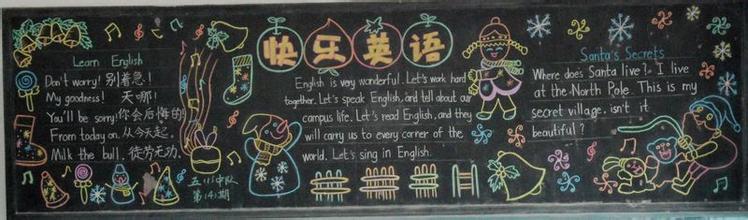 Learn English
Don't worry! 别着急!
My goodness! 天哪!
You'll be sorry. 你会后悔的
From today on. 从今天起.
Milk the bull. 徒劳无功.
五(1)中队
第(4)期
快乐英语
English is very wonderful. Let's work hard
together. Let's speak English, and tell about our
campus life. Let's read English, and they
will carry us to every corner of the
world. Let's sing in English.
Santa's Secrets
Where does Santa live? I live
at the North Pole. This is my
secret village. isn't it
beautiful?